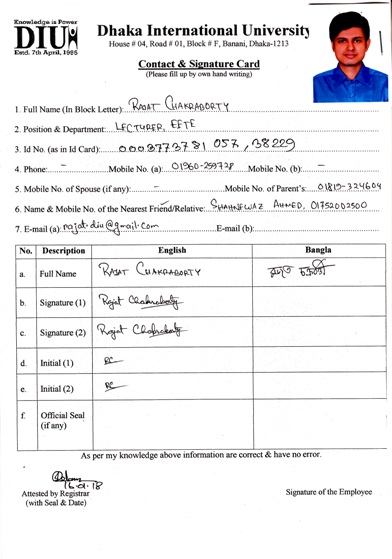 Knowledge is Power
DIU
Estd. 7th April, 1995
Dhaka International University
House # 04, Road # 01, Block # F, Banani, Dhaka-1213
Contact & Signature Card
(Please fill up by own hand writing)
1. Full Name (In Block Letter): RAJAT CHAKRABORTY
2. Position & Department: LECTURER, EETE
3. Id No. (as in Id Card): 0003773781 057, 38229
4. Phone: - Mobile No. (a): 01960-259728 Mobile No. (b): -
5. Mobile No. of Spouse (if any): - Mobile No. of Parent's: 01819-324604
6. Name & Mobile No. of the Nearest Friend/Relative: SHAHNEWAZ AHMED, 01752002500
7. E-mail (a): rajat.diu@gmail.com E-mail (b):
No. Description English Bangla
a. Full Name RAJAT CHAKRABORTY রজত চক্রবর্তী
b. Signature (1) Rajat Chakraborty
c. Signature (2) Rajat Chakraborty
d. Initial (1) RC
e. Initial (2) RC
f. Official Seal
(if any)
As per my knowledge above information are correct & have no error.
Attested by Registrar
(with Seal & Date)
Signature of the Employee